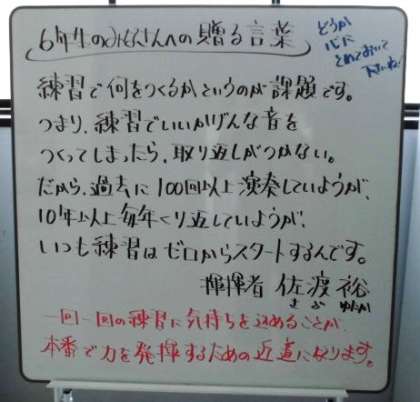 6年生のみなさんへの贈る言葉
どうか
心に
とめておいて
下さいね!
練習で何をつくるかというのが課題です。
つまり、練習でいいかげんな音を
つくってしまったら、取り返しがつかない。
だから、過去に100回以上演奏していようが、
10年以上毎年くり返していようが、
いつも練習はゼロからスタートするんです。
指揮者 佐渡裕
さど ゆたか
一回一回の練習に気持ちを込めることが、
本番で力を発揮するための近道になります。